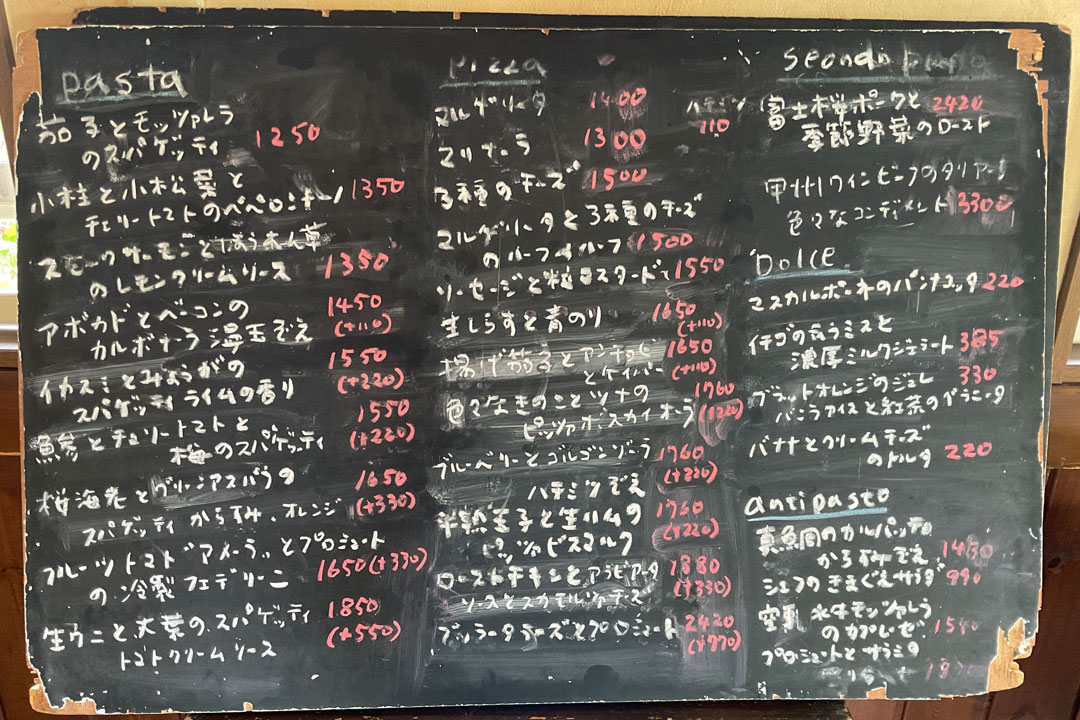 pasta
茄子とモッツァレラ
のスパゲッティ 1250
小柱と小松菜と
チェリートマトのペペロンチーノ 1350
スモークサーモンとほうれん草
のレモンクリームソース 1350
アボカドとベーコンの 1450
カルボナーラ 温玉ぞえ (+110)
イカスミとみょうがの 1550
スパゲッティ ライムの香り (+220)
とチェリートマトと 1550
梅のスパゲッティ (+220)
桜海老とグリーンアスパラの 1650
スパゲッティ からすみ、オレンジ (+330)
フルーツトマト"アメーラ"とプロシュート
の冷製フェデリーニ 1650(+330)
生ウニと大葉のスパゲッティ 1850
トマトクリームソース (+550)
pizza
マルゲリータ 1400 ハチミツ
110
マリナーラ 1300
3種のチーズ 1500
マルゲリータと3種のチーズ
のハーフ&ハーフ 1500
ソーセージと粒マスタード 1550
生しらすと青のり 1650
(+110)
揚げ茄子とアンチョビ 1650
とケイパー (+110)
色々なきのことツナの 1760
ピッツァボスカイオーラ (+220)
ブルーベリーとゴルゴンゾーラ 1760
ハチミツぞえ (+220)
半熟玉子と生ハムの 1760
ピッツァビスマルク (+220)
ローストチキンとアラビアータ 1880
ソースとスカモルツァチーズ (+330)
ブッラータチーズとプロシュート 2420
(+770)
seondo
富士桜ポークと 2420
季節野菜のロースト
甲州ワインビーフのタリアータ
色々なコンディメント 3300
DOLCE
マスカルポーネのパンナコッタ 220
イチゴのティラミスと
濃厚ミルクジェラート 385
ブラッドオレンジのジュレ 330
バニラアイスと紅茶のグラニータ
バナナとクリームチーズ
のトルタ 220
antipasto
真鯛のカルパッチョ
からすみぞえ
シェフのきまぐれサラダ 990
空乳 水牛モッツァレラ
のカプレーゼ
プロシュートとサラミ